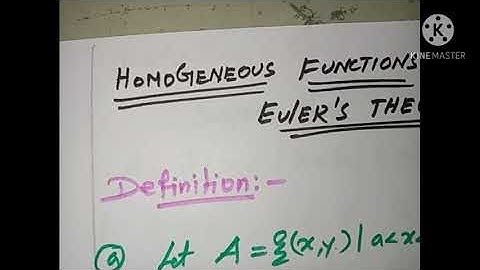 KINEMASTER
HOMOGENEOUS FUNCTIONS
EULER'S THE
Definition:-
(a) Let A = {(x,y) | a<x<